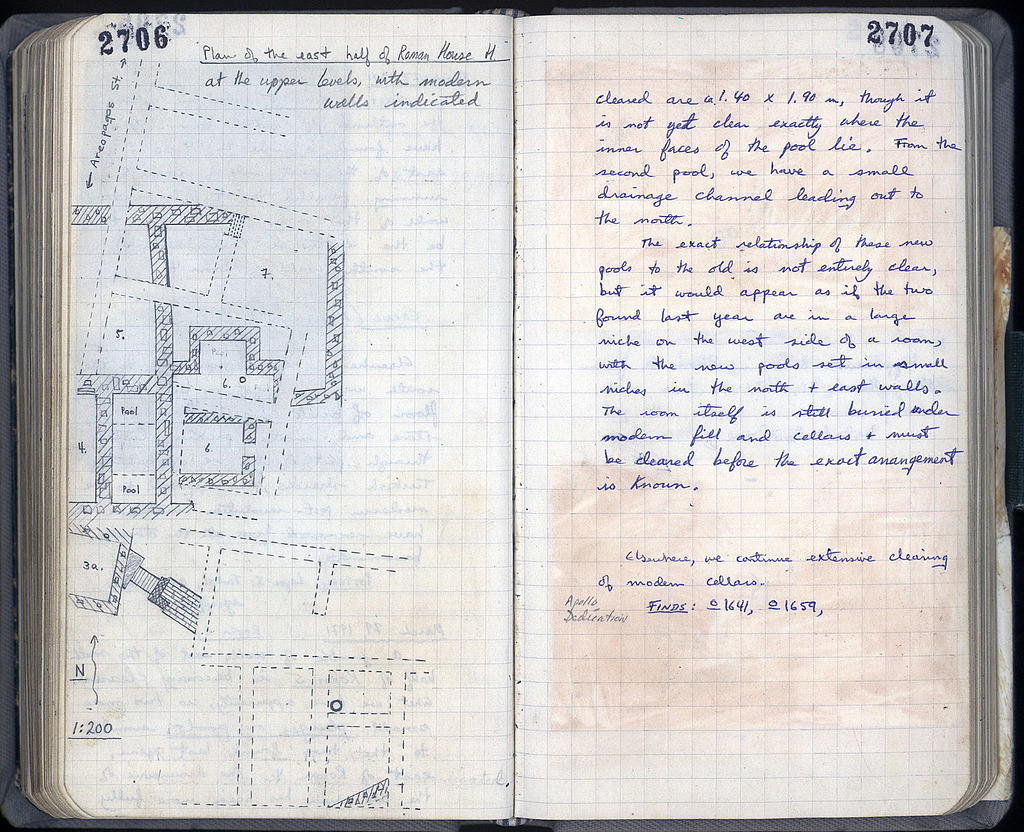 2706
Plan of the east half of Roman House H
at the upper levels, with modern
walls indicated
← Areopagus St. →
7.
5.
Pool
6.
4.
Pool
6.
Pool
3a.
N
1:200
2707
cleared are ca 1.40 x 1.90 m, though it
is not yet clear exactly where the
inner faces of the pool lie. From the
second pool, we have a small
drainage channel leading out to
the north.
The exact relationship of these new
pools to the old is not entirely clear,
but it would appear as if the two
found last year are in a large
niche on the west side of a room,
with the new pools set in small
niches in the north + east walls.
The room itself is still buried under
modern fill and cellars + must
be cleared before the exact arrangement
is known.
Elsewhere, we continue extensive clearing
of modern cellars.
Apollo
Dedication
FINDS: O 1641, O 1659,